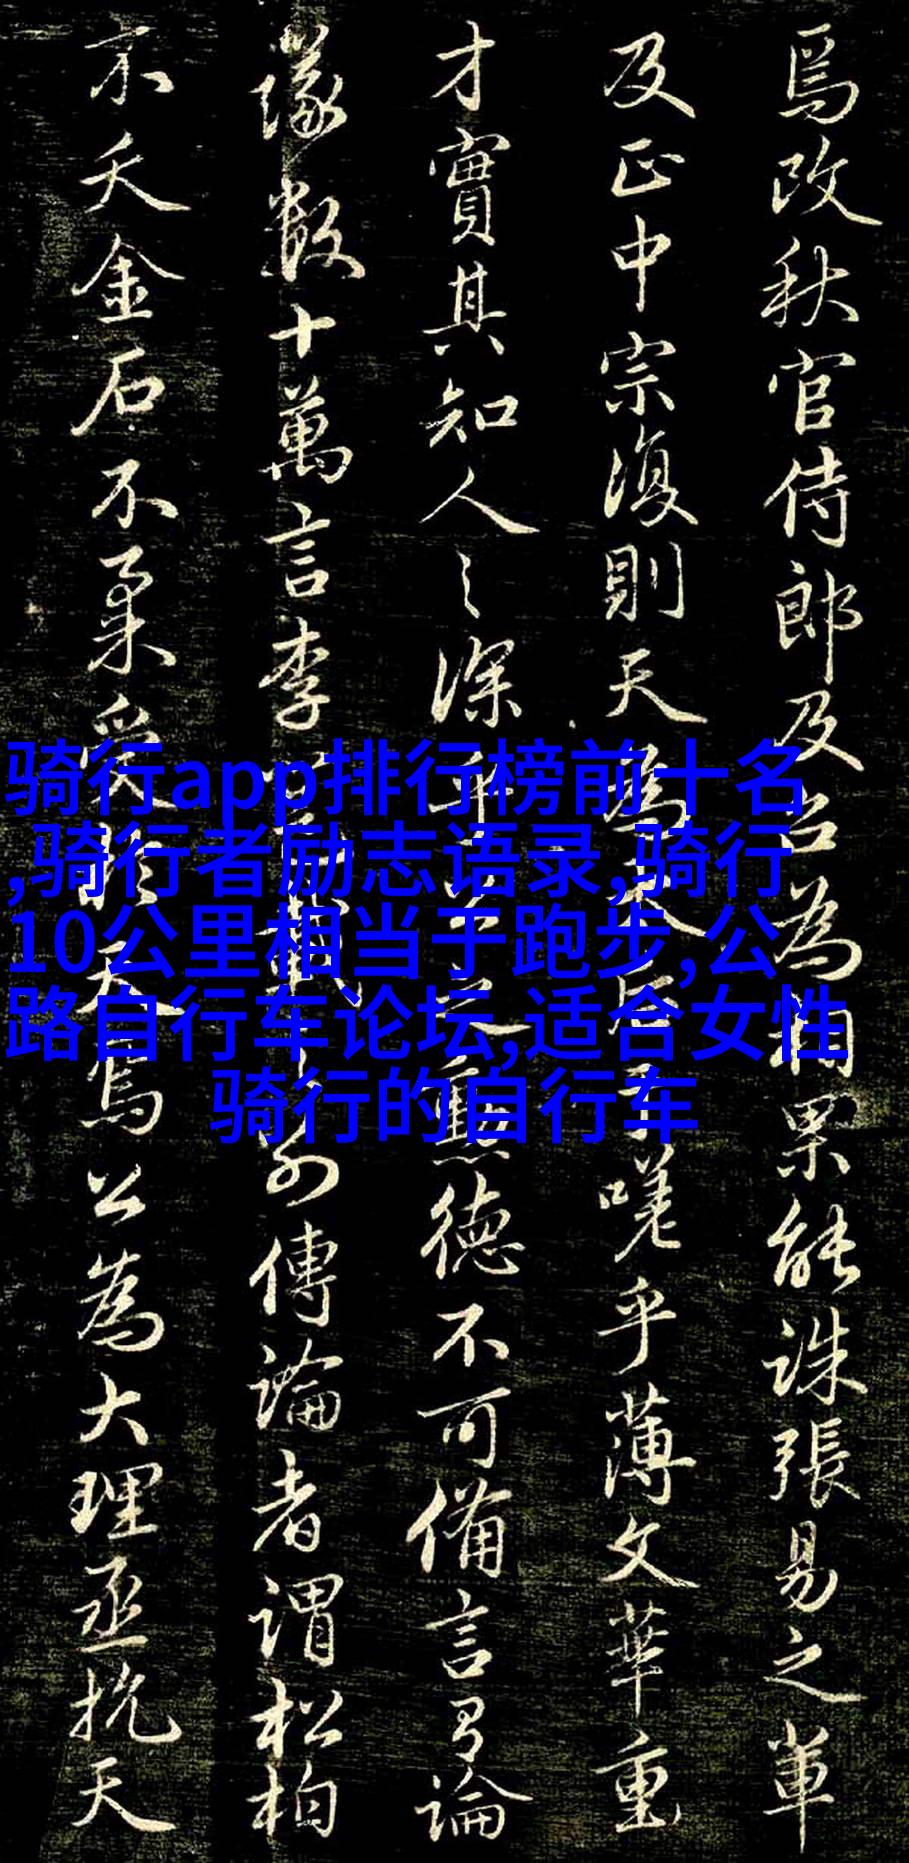 焉改秋官侍郎及召為相果能誅張易之輩
及正中宗復則天為太后于嗟乎薄文華重
才實其知人之深乎公之勳德不可備言有論
議數十萬言李邕載之別傳論者謂松柏
不夭金石不柔受於天焉公為大理丞抗天
骑行app排行榜前十名
,骑行者励志语录,骑行
10公里相当于跑步,公
路自行车论坛,适合女性
骑行的自行车